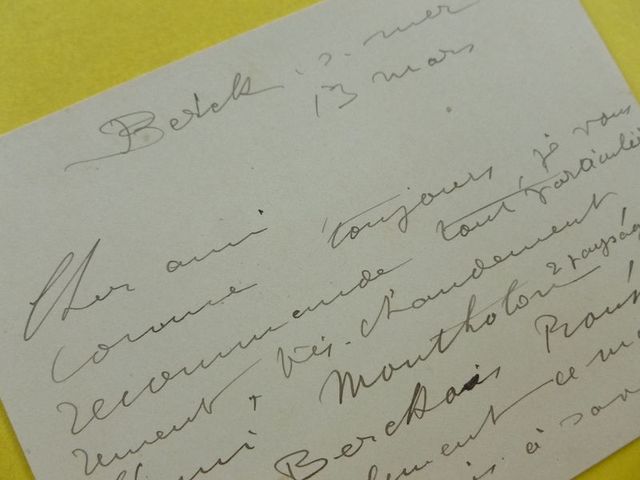 Berck s. mer
13 mars
Cher ami
comme toujours, je vous
recommande tout particuliè
rement, très chaudement,
Montholon 2 paysag
Berckois
lement ce m
à son